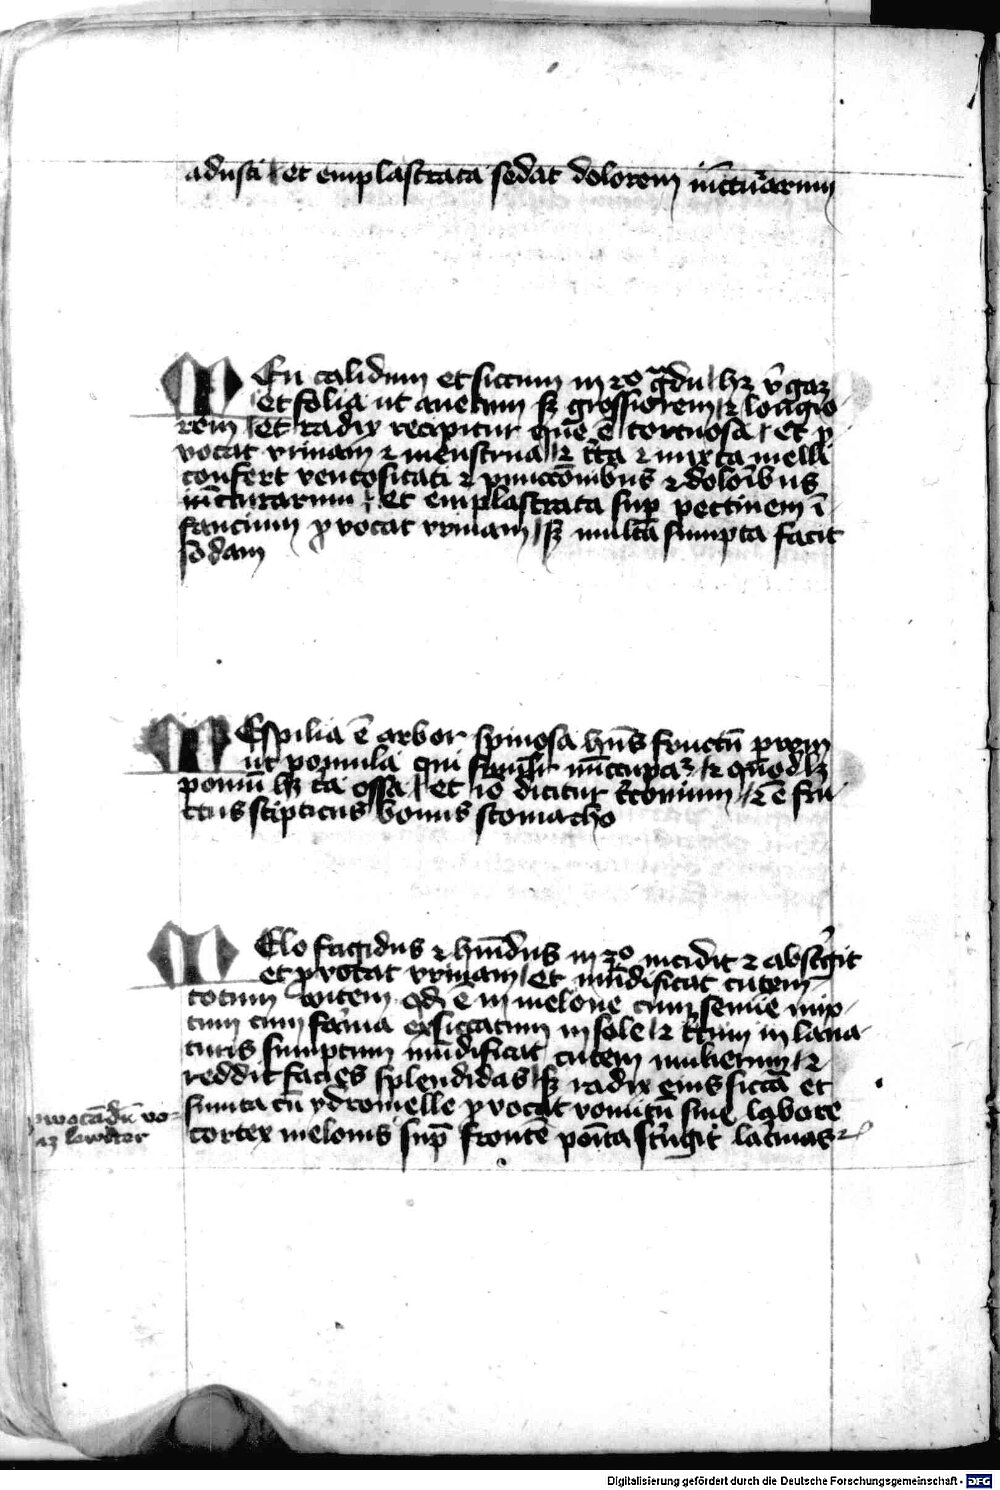 adusti et emplastrata sedat dolorem iūcturarum
MEu calidum et siccum in 2o gͣdu hꝫ v̓gaꝫ
et folia ut anetum sꝫ grossiorem ⁊ longio-
rem et radix recipitur que ē tortuosa et ꝓ
vocat vrinam ⁊ menstrua ⁊ tͥta ⁊ mixta melli
confert ventositati ⁊ puncc̄onibus ⁊ dolorībus
iūcturarum et emplastrata suꝑ pectinem ī-
fancium ꝓvocat vrinam sꝫ multā sumpta facit
sodam
MEspilia ē arbor spinosa hn̄s fructū
ut pomula qui nūccupaꝛ ⁊ quodlꝫ
pomū hꝫ tͥa ossa et io dicitur tͥconium ⁊ ē fru-
ctus stipticus bonus stomacho
MElo frigidus ⁊ hūidus in 2o incidit ⁊ abst̓git
et ꝓvocat vrinam et mūdificat cutem
totum autem qd̄ ē in melone cum semīe mix-
tum cum farīna exsiccatum in sole ⁊ tͥtum in lava-
turis sumptum mūdificat cutem mulierum ⁊
reddit facies splendidas sꝫ radix eius siccā et
sumta cū ydromelle ꝓvocat vomitū sine labore
cortex melonis suꝑ frontē poīta st̓ngit lac̓mas
ꝓvocādū vo-